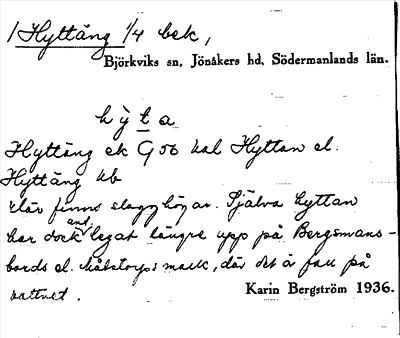 1 Hyttäng 1/4 bek,
Björkviks sn, Jönåkers hd, Södermanlands län.
hy̆ta
Hyttäng ek G 56 kal Hyttan el.
Hyttäng kb
där finns slagghögar. Själva hyttan
har dock and. legat längre upp på Bergsmans-
bords el. mark, där det är fall på
vattnet.
Karin Bergström 1936.